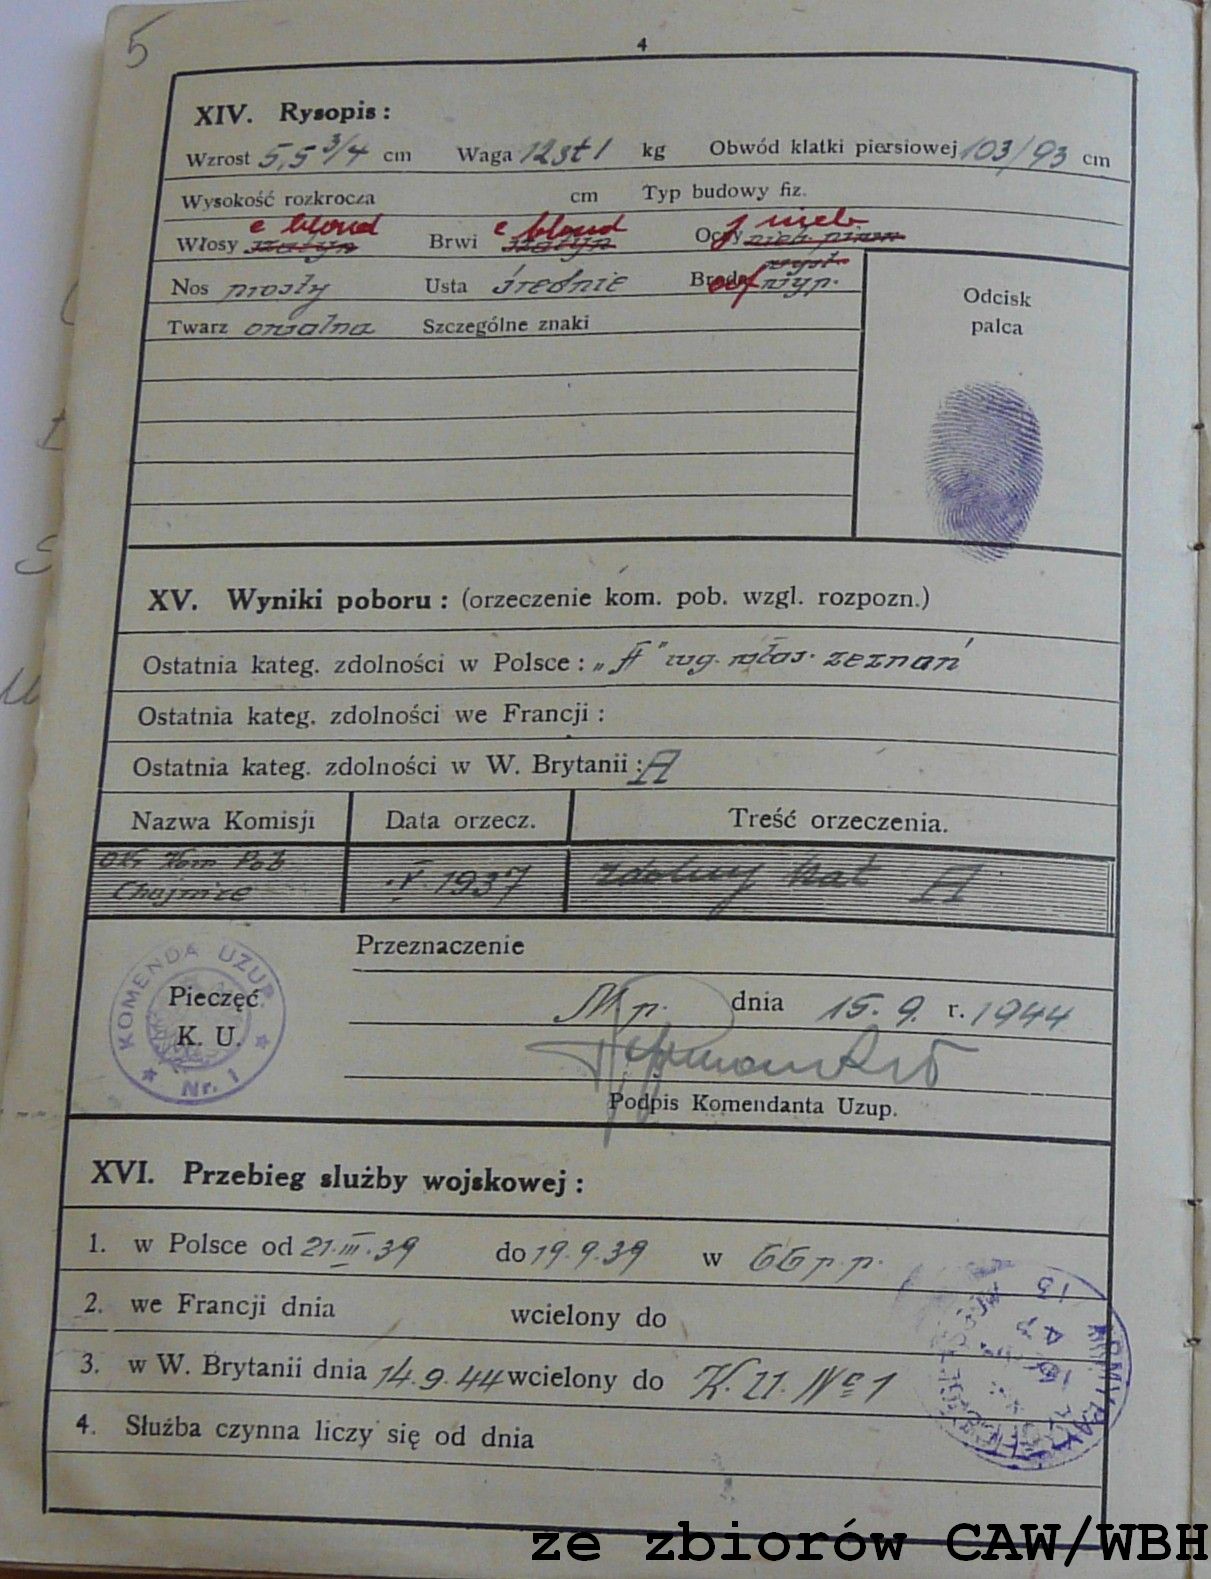 5
4
XIV. Rysopis :
Wzrost 5,5 3/4 cm Waga 12 st 1 kg Obwód klatki piersiowej 103/93 cm
Wysokość rozkrocza cm Typ budowy fiz.
c blond c blond j nieb
Włosy szatyn Brwi szatyn Oczy nieb. piwn
wyst.
Nos prosty Usta średnie Broda
Twarz owalna Szczególne znaki
Odcisk
palca
XV. Wyniki poboru : (orzeczenie kom. pob. wzgl. rozpozn.)
Ostatnia kateg. zdolności w Polsce : „A" wg. włas. zeznań
Ostatnia kateg. zdolności we Francji :
Ostatnia kateg. zdolności w W. Brytanii : A
Nazwa Komisji Data orzecz. Treść orzeczenia.
Okr Kom Pob
Chojnice .V. 1937 zdolny kat A
Przeznaczenie
KOMENDA UZUP.
Nr. 1
Pieczęć
K. U.
M p. dnia 15. 9. r. 1944
Podpis Komendanta Uzup.
XVI. Przebieg służby wojskowej :
1. w Polsce od 21.III.39 do 19.9.39 w 66 p. p.
2. we Francji dnia wcielony do
3. w W. Brytanii dnia 14.9.44 wcielony do K. U. No 1
4. Służba czynna liczy się od dnia
ze zbiorów CAW/WBH